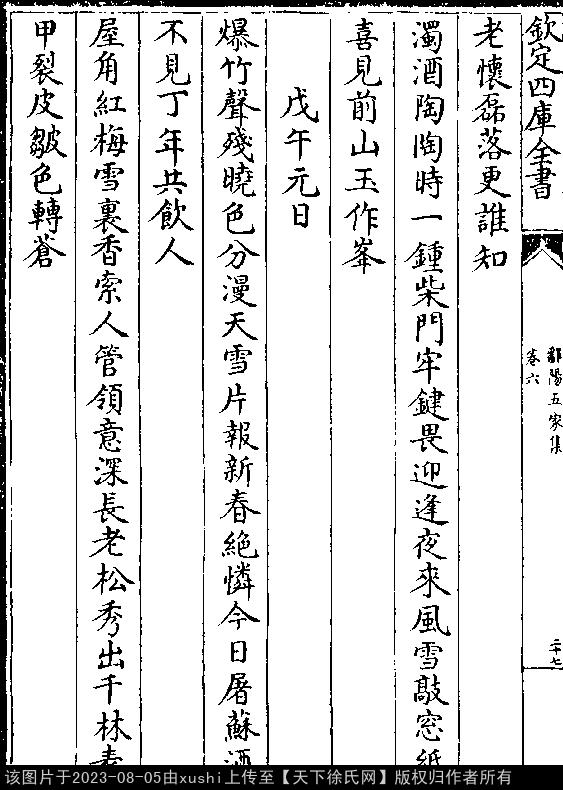 欽定四庫全書
鄱陽五家集
卷六
二十七
老懷磊落更誰知
濁酒陶陶時一鍾柴門牢鍵畏迎逢夜來風雪敲窓紙
喜見前山玉作峯
戊午元日
爆竹聲殘曉色分漫天雪片報新春絶憐今日屠蘇酒
不見丁年共飲人
屋角紅梅雪裏香索人管領意深長老松秀出千林表
甲裂皮皺色轉蒼
该图片于2023-08-05由xushi上传至【天下徐氏网】版权归作者所有